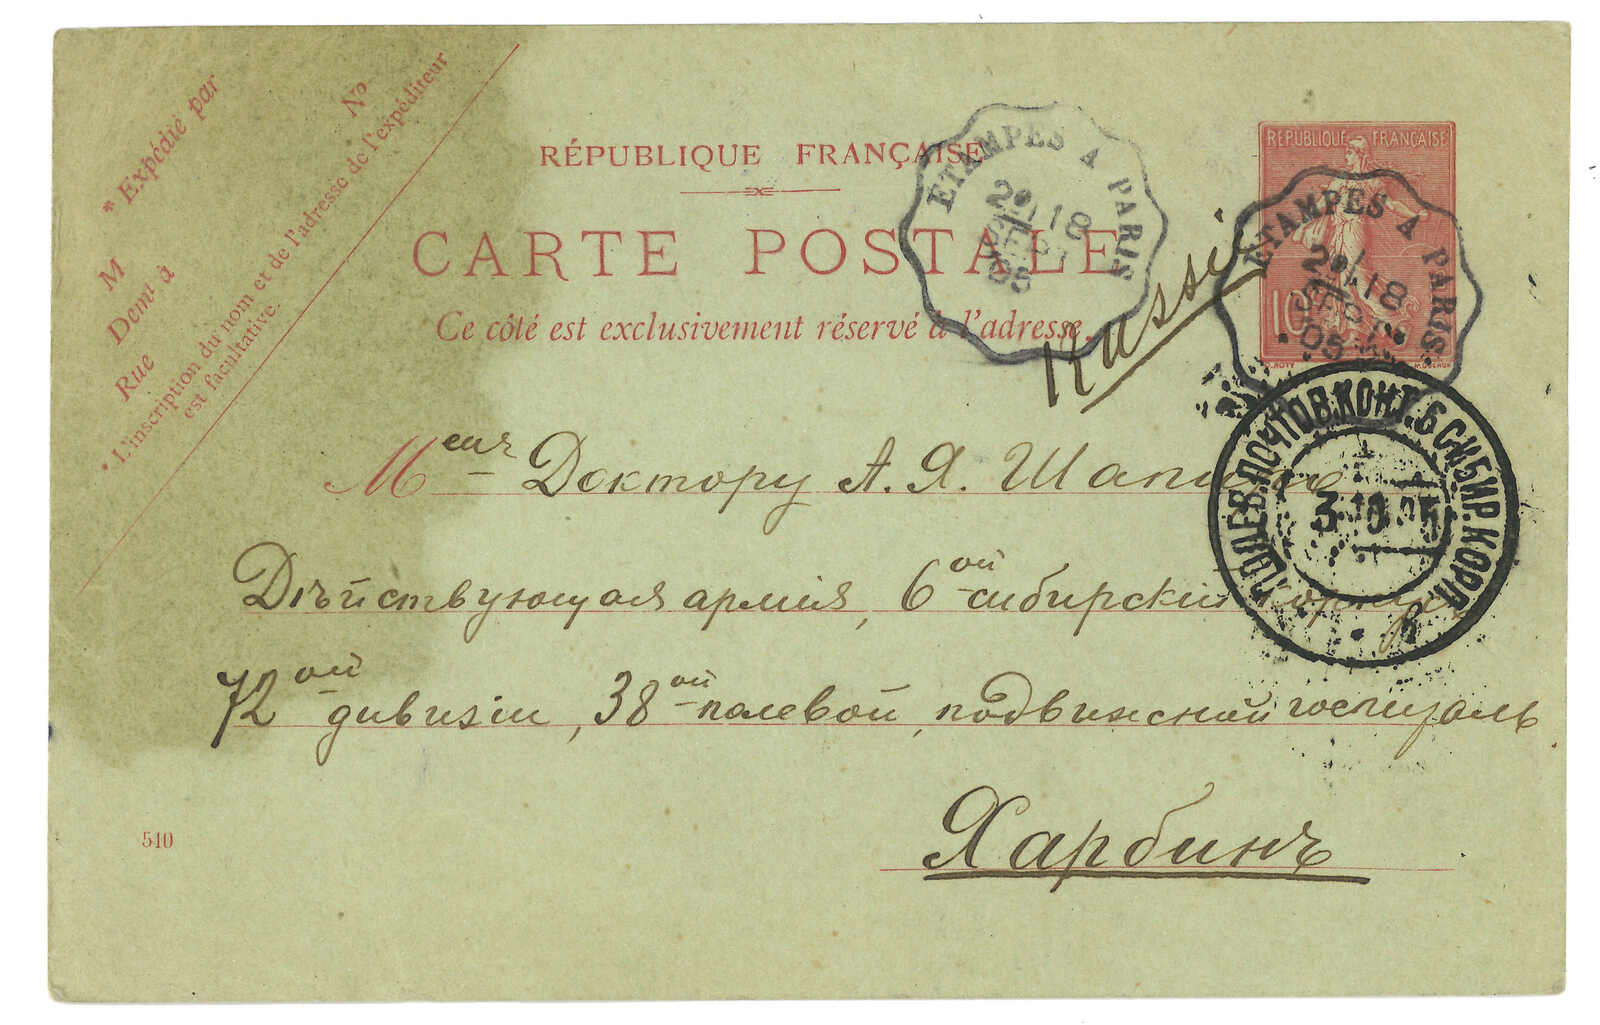 * Expédié par
No
M
Demt à
Rue
* L'inscription du nom et de l'adresse de l'expéditeur
est facultative.
RÉPUBLIQUE FRANÇAISE
CARTE POSTALE
Ce côté est exclusivement réservé à l'adresse.
ETAMPES A PARIS
2º/ 18
SEPT
05
REPUBLIQUE FRANÇAISE
10
O. ROTY
ETAMPES A PARIS
2º/ 18
SEPT
05
Russie
ПОЛЕВ. ПОЧТОВ. КОНТ. 6 СИБИР. КОРП.
Доктору А. Я. Шапиро
Дѣйствующая армія, 6ой сибирскій корпусъ
72ой дивизіи, 38ой полевой подвижной госпиталь
Харбинъ
510